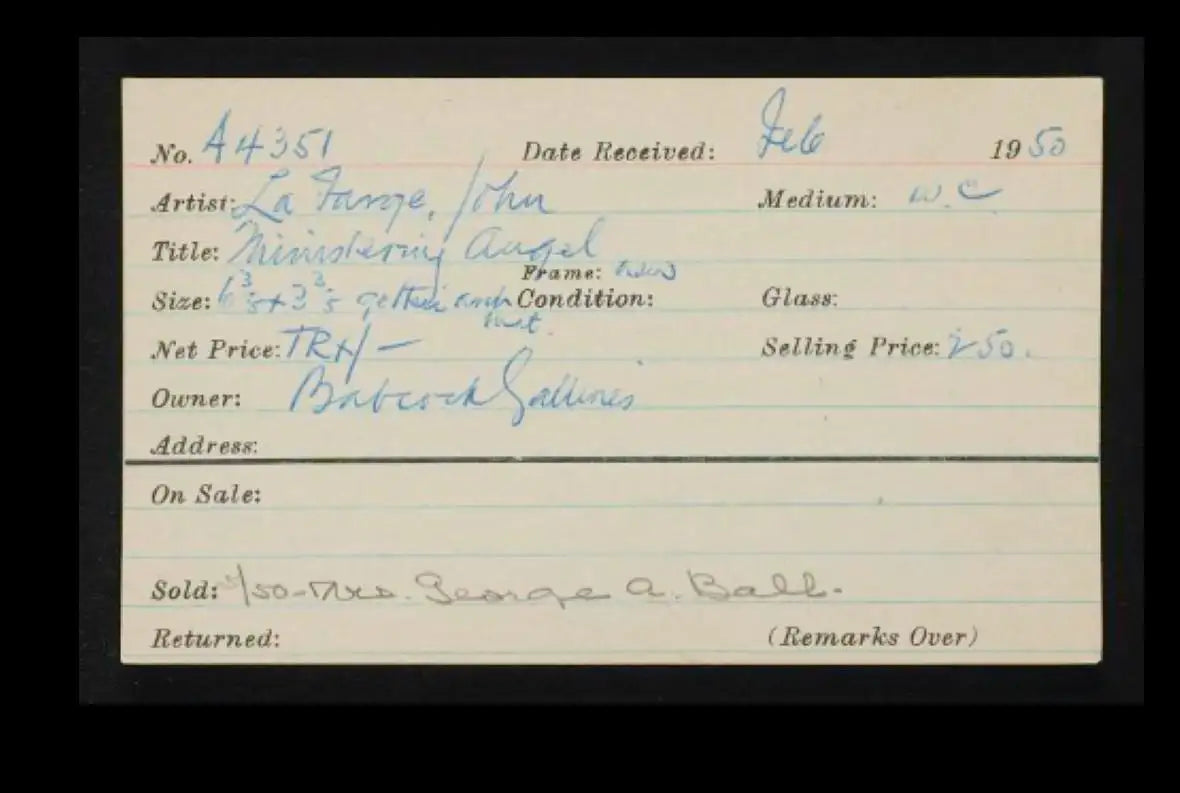 No. A4351 Date Received: Feb 1950
Artist: La Farge, John Medium: W.C
Title: Ministering Angel
Frame: new
Size: 6 3/8 x 3 3/8 gothic arch Condition: Glass:
mat.
Net Price: TRX/— Selling Price: 250.
Owner: Babcock Galleries
Address:
On Sale:
Sold: /50-Mrs. George A. Ball.
Returned: (Remarks Over)